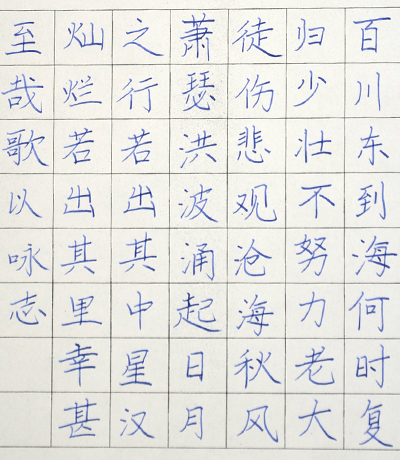 百川东到海何时复
归少壮不努力老大
徒伤悲观沧海秋风
萧瑟洪波涌起日月
之行若出其中星汉
灿烂若出其里幸甚
至哉歌以咏志